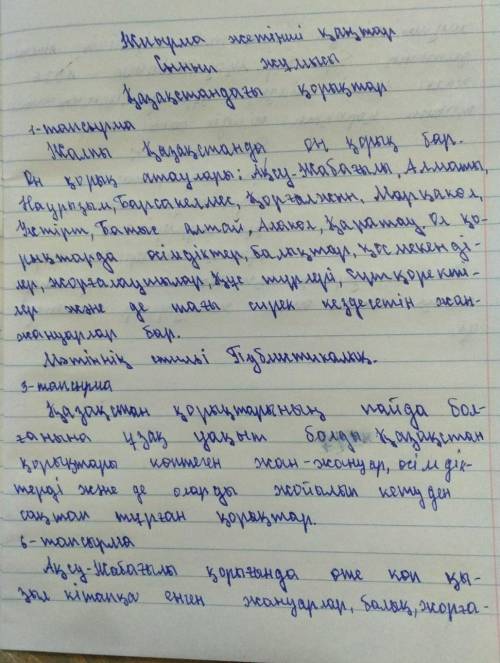 Жиырма жетінші қаңтар
Сынып жұмысы
Қазақстандағы қорықтар
1-тапсырма
Жалпы Қазақстанды он қорық бар.
Он қорық атаулары: Ақсу-Жабағалы, Алматы,
Наурызым, Барсакелмес, Қорғалжын, Марқакол,
Үстірт, Батыс алтай, Алакол, Қаратау. Ол қо-
рықтарда өсімдіктер, балықтар, қос мекенді-
лер, жорғалаушылар, Құс түрлері, сүтқоректі-
лер және де тағы сирек кездесетін жан-
жануарлар бар.
Мәтіннің стилі Публистикалық.
3-тапсырма
Қазақстан қорықтарының пайда бол-
ғанына ұзақ уақыт болды Қазақстан
қорықтары көптеген жан-жануар, өсімдік-
терді және де оларды жойылып кетуден
сақтап тұрған қорықтар.
6-тапсырма
Ақсу-Жабағалы қорығында өте көп қы-
зыл кітапқа енген жануарлар, балық, жорға-